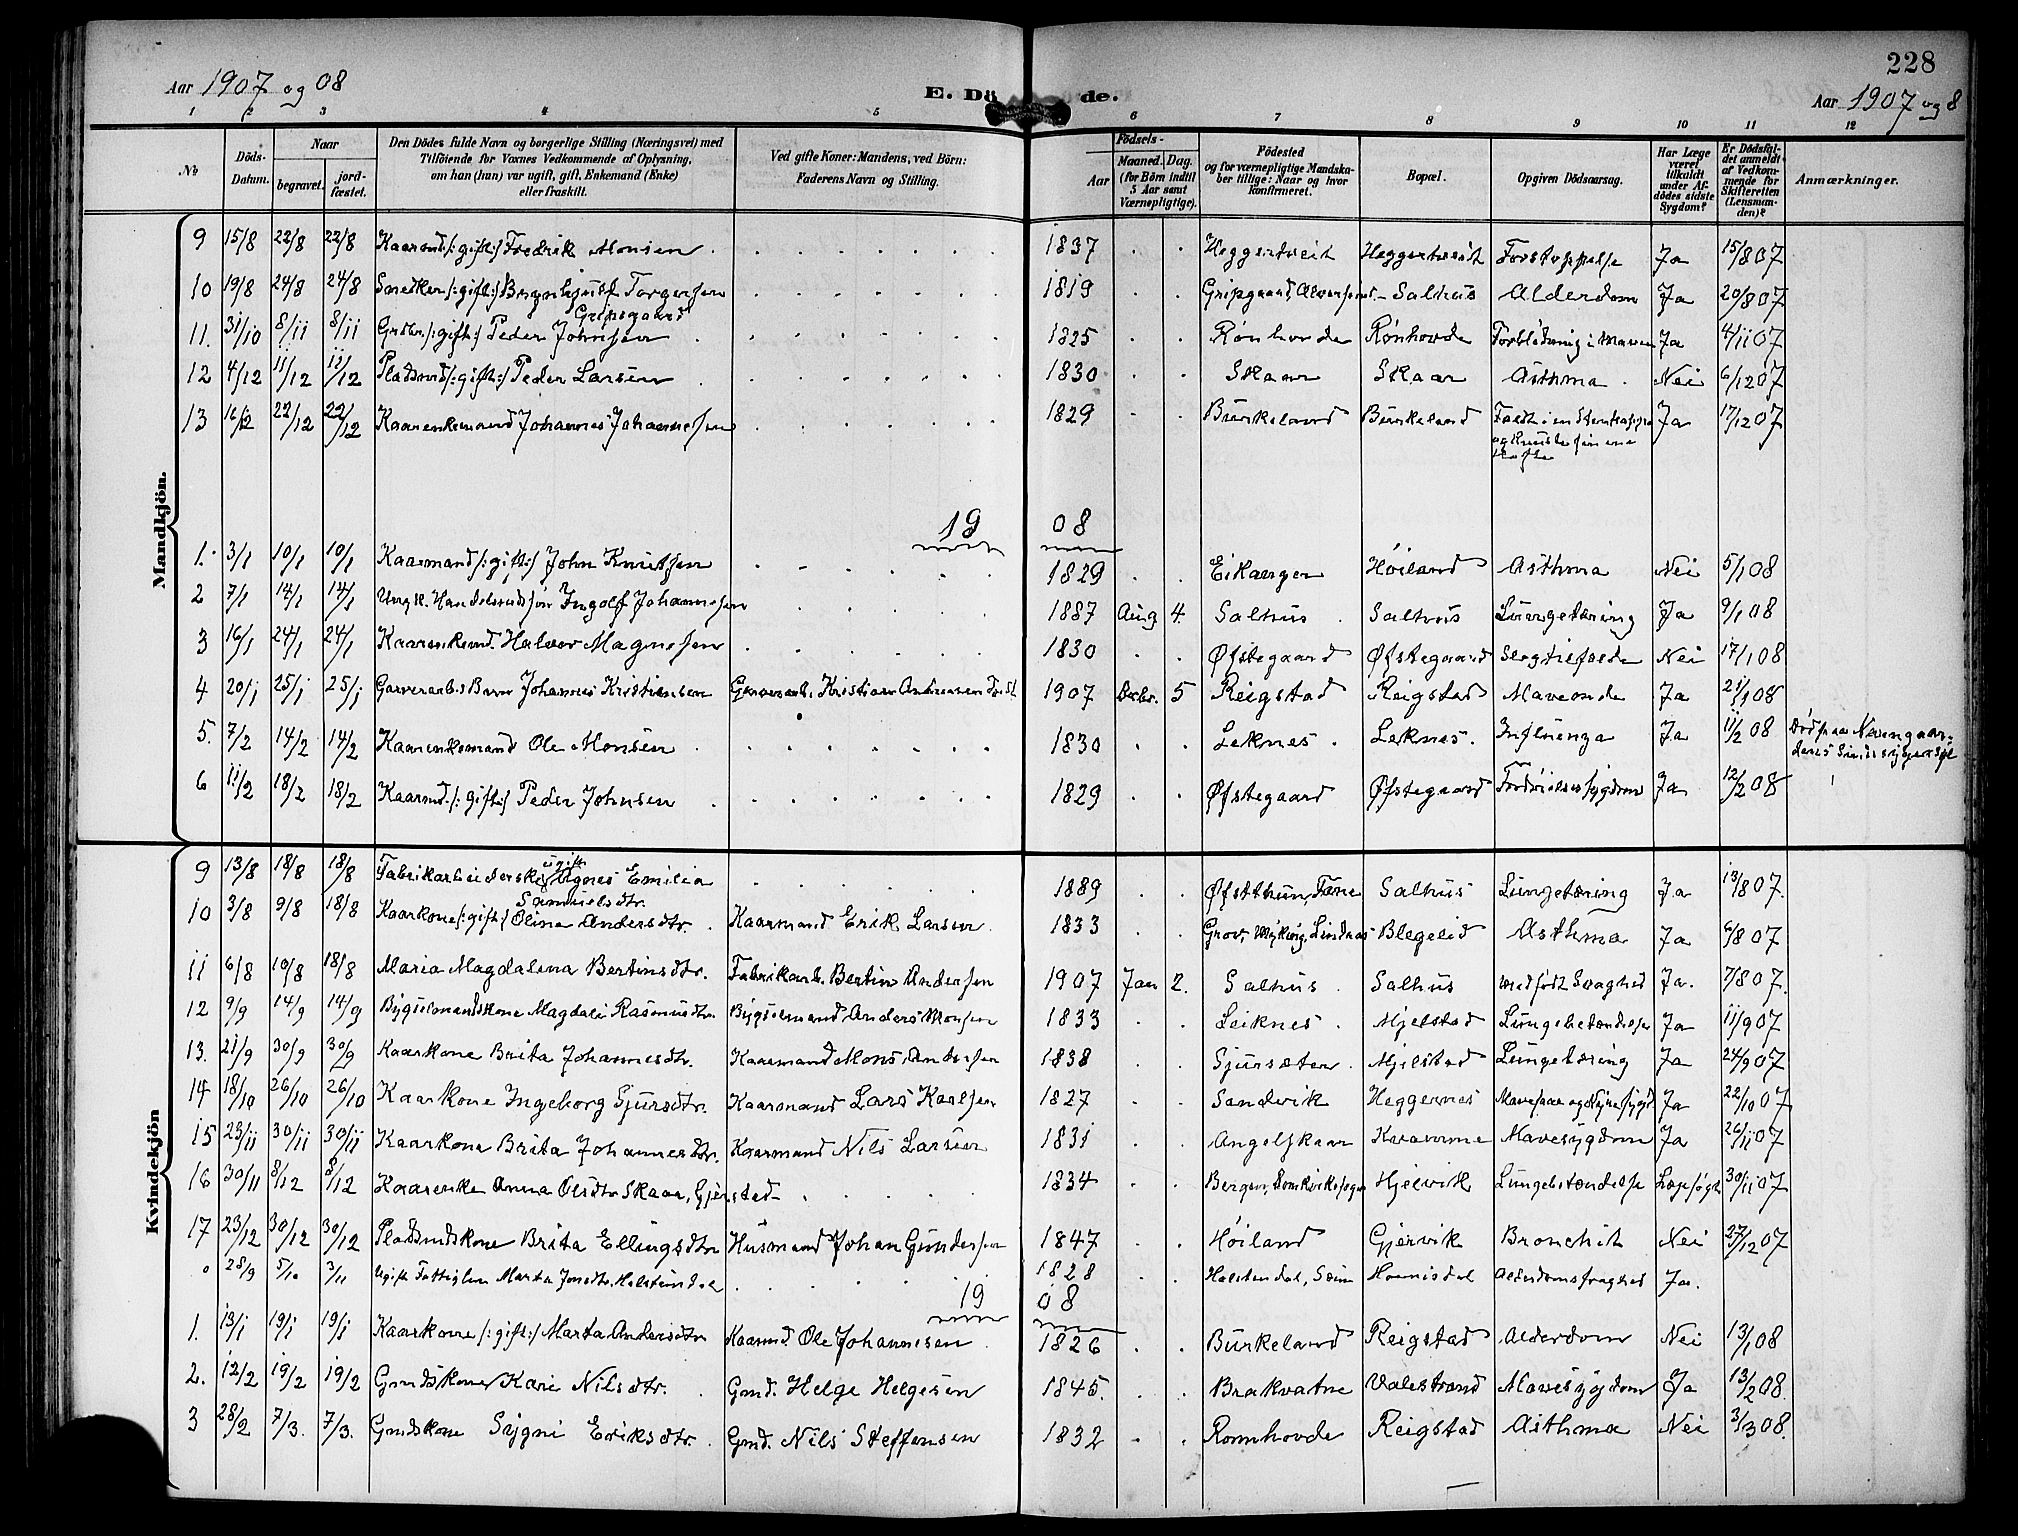 228
Aar 1907 og 08
E. Dö de.
Aar 1907 og 8
1 2 3 4 5 6 7 8 9 10 11 12
№
Döds-Datum.
Naar
begravet.
jord-fæstet.
Den Dödes fulde Navn og borgerlige Stilling (Næringsvei) med
Tilföiende for Voxnes Vedkommende af Oplysning,
om han (hun) var ugift, gift, Enkemand (Enke)
eller fraskilt.
Ved gifte Koner: Mandens, ved Börn:
Faderens Navn og Stilling.
Födsels-
Aar
Maaned. Dag.
(for Börn indtil
5 Aar samt
Værnepligtige).
Födested
og for værnepligtige Mandska-
ber tillige: Naar og hvor
konfirmeret.
Bopæl.
Opgiven Dödsaarsag.
Har Læge
været
tilkaldt
under Af-
dödes sidste
Sygdom?
Er Dödsfal-
det anmeldt
af Vedkom-
mende for
Skifteretten
(Lensman-
den)?
Anmærkninger.
Mandkjön.
9 15/8 22/8 22/8 Kaarmd. /: gift :/ Fredrik Monsen 1837 Heggertveit Heggertveit Forstoppelse Ja 15/8 07
10 19/8 24/8 24/8 Snedker /: gift :/ Brynhjulf Torgersen Gripsgaard 1819 Gripgaard, Alversund Salhus Alderdom Ja 20/8 07
11. 31/10 8/11 8/11 Grdbr. /: gift :/ Peder Johnsen 1825 Rønhovde Rønhovde Forblødning i Maven Ja 4/11 07
12 4/12 11/12 11/12 Pladsmd /: gift :/ Peder Larsen 1830 Skaar Skaar Asthma Nei 6/12 07
13 16/12 22/12 22/12 Kaarenkemand Johannes Johannesen 1829 Burkeland Burkeland Faldt i en Stentrappe og knuste sin ene Ja 17/12 07
1908
1. 3/1 10/1 10/1 Kaarmand /: gift :/ John Knutsen 1829 Eikanger Høiland Asthma Nei 5/1 08
2 7/1 14/1 14/1 Ungk. Handelsmdssøn Ingolf Johannesen 1887 Aug 4. Salhus Salhus Lungetæring Ja 9/1 08
3 16/1 24/1 24/1 Kaarenkemd. Halvor Magnesen 1830 Øfstegaard Øfstegaard Slagtilfælde Nei 17/1 08
4 20/1 25/1 25/1 Garverarb.s Barn Johannes Kristiansen Garverarb. Kristian Andreassen 1907 Decbr. 5 Reigstad Reigstad Maveonde Ja 21/1 08
5. 7/2 14/2 14/2 Kaarenkemand Ole Monsen 1830 Leknes Leknes Influenza Ja 11/2 08 Død paa Neevengaar-dens Sindssygeasyl
6 11/2 18/2 18/2 Kaarmd. /: gift :/ Peder Johnsen 1829 Øfstegaard Øfstegaard Fordøielsessygdom Ja 12/2 08
Kvindekjön
9 13/8 18/8 18/8 Fabrikarbeiderske ugift Agnes Emilia Samuelsdtr. 1889 Øfsthun, Fane Salhus Lungetæring Ja 13/8 07.
10 3/8 9/8 18/8 Kaarkone /: gift :/ Oline Andersdtr. Kaarmand Erik Larsen 1833 Grov, Myking, Lindaas Blegelid Asthma Ja 6/8 07
11 6/8 10/8 18/8 Maria Magdalena Bertinsdtr. Fabrikarb. Bertin Andersen 1907 Jan 2. Salhus Salhus medfødt Svaghed Ja. 7/8 07.
12 9/9 14/9 14/9 Bygselmandskone Magdali Rasmusdtr. Bygselmand Anders Monsen 1833 Leiknes Mjelstad Lungebetændelse Ja 11/9 07
13. 21/9 30/9 30/9 Kaarkone Brita Johannesdtr. Kaarmand Mons Andersen 1838 Sjursæter Mjelstad Lungetæring Ja 24/9 07
14 18/10 26/10 26/10 Kaarkone Ingeborg Sjursdtr. Kaarmand Lars Karlsen 1827 Sandvik Heggernes Mavesaar og Nyresygd Ja 22/10 07
15 23/11 30/11 30/11 Kaarkone Brita Johannesdtr. Kaarmand Nils Larsen 1831 Angelskaar Kvamme Mavesygdom Ja 26/11 07
16 30/11 8/12 8/12 Kaarenke Anna Olsdtr Skaar, Gjerstad 1834 Bergen, Domkirkesogn Hjelvik Lungebetændelse Lægesøgt 30/11 07
17 23/12 30/12 30/12 Pladsmdskone Brita Ellingsdtr Husmand Johan Gundersen 1847 Høiland Gjervik Bronchit Nei 27/12 07
0 28/9 5/10 3/11 Ugift Fattiglem Marta Jonsdtr. Holstendal 1828 Holstendal, Alderdomssvaghed Ja.
1908
1. 13/1 19/1 19/1 Kaarkone /: gift :/ Marta Andersdtr Kaarmd. Ole Johannesen 1826 Burkeland Reigstad Alderdom Nei 13/1 08
2. 12/2 19/2 19/2 Gmdskone Kari Nilsdtr. Gmd. Helge Helgesen 1845. Brakvatne Valestrand Mavesygdom Ja 13/2 08.
3 28/2 7/3. 7/3. Gmdskone Sygni Eriksdtr. Gmd. Nils Steffensen 1832 Romhovde Reigstad Asthma Nei 3/3 08.